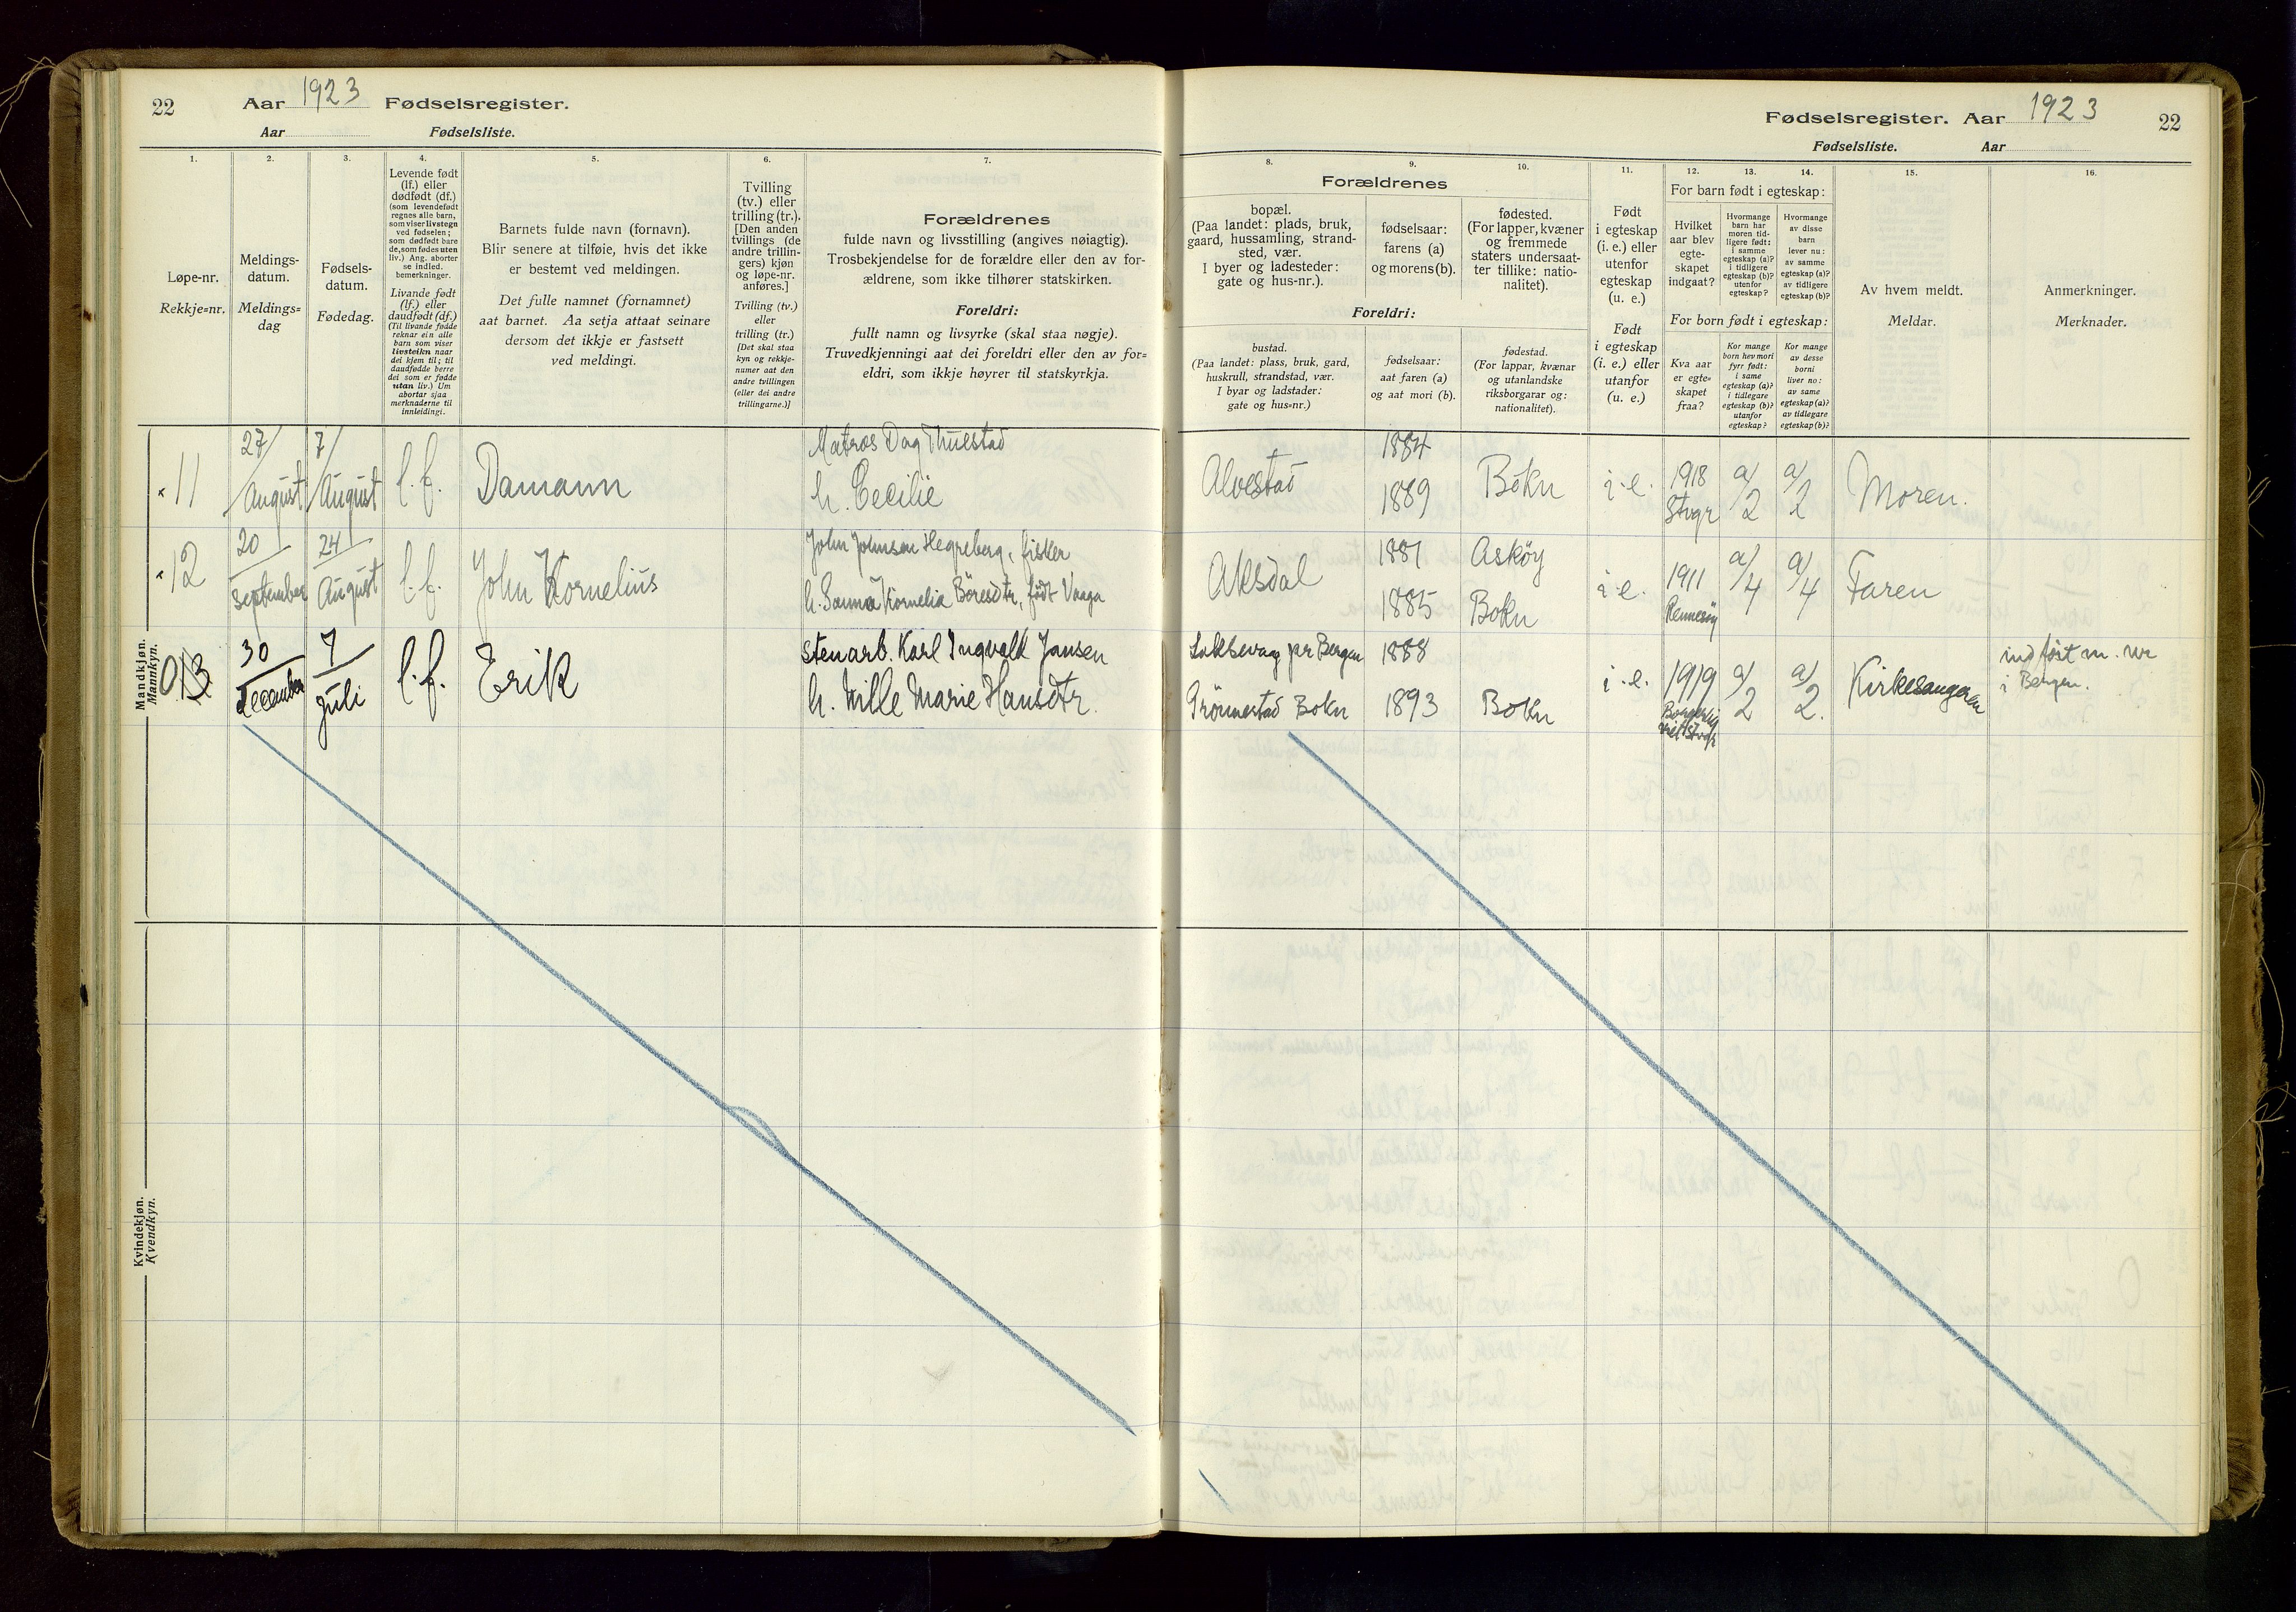 22 Aar 1923 Fødselsregister.
Aar Fødselsliste.
1.
2.
3.
4.
5.
6.
7.
Løpe-nr.
Rekkje=nr.
Meldings-
datum.
Meldings=
dag
Fødsels-
datum.
Fødedag.
Levende født
(lf.) eller
dødfødt (df.)
(som levendefødt
regnes alle barn,
som viser livstegn
ved fødselen;
som dødfødt bare
de, som fødes uten
liv.) Ang. aborter
se indled.
bemerkninger.
Livande født
(lf.) eller
daudfødt (df.)
(Til livande fødde
reknar ein alle
barn som viser
livsteikn naar
dei kjem til; til
daudfødde berre
dei som er fødde
utan liv.) Um
abortar sjaa
merknaderne til
innleidingi.
Barnets fulde navn (fornavn).
Blir senere at tilføie, hvis det ikke
er bestemt ved meldingen.
Det fulle namnet (fornamnet)
aat barnet. Aa setja attaat seinare
dersom det ikkje er fastsett
ved meldingi.
Tvilling
(tv.) eller
trilling (tr.).
[Den anden
tvillings (de
andre trillin-
gers) kjøn
og løpe-nr.
anføres.]
Tvilling (tv.)
eller
trilling (tr.)
[Det skal staa
kyn og rekkje-
numer aat den
andre tvillingen
(eller dei andre
trillingarne.)]
Forældrenes
fulde navn og livsstilling (angives nøiagtig).
Trosbekjendelse for de forældre eller den av for-
ældrene, som ikke tilhører statskirken.
Foreldri:
fullt namn og livsyrke (skal staa nøgje).
Truvedkjenningi aat dei foreldri eller den av for=
eldri, som ikkje høyrer til statskyrkja.
Mandkjøn.
Mannkyn.
11
27/
August
7/
August
l.f.
Damann
Matros Dag Thuestad
h. Cecilie
12
20
September
24
August
l.f.
John Kornelius
John Johnsen Hegreberg, fisker
h. Sanna Kornelia Böresdtr, født Vaaga
013
30
december
7
juli
l.f.
Erik
stenarb. Karl Ingvald Jansen
h. Nille Marie Hansdtr.
Kvindekjøn.
Kvendkyn.
Fødselsregister. Aar 1923 22
Fødselsliste. Aar
8.
9.
10.
11.
12.
13.
14.
15.
16.
Forældrenes
bopæl.
(Paa landet: plads, bruk,
gaard, hussamling, strand-
sted, vær.
I byer og ladesteder:
gate og hus-nr.).
fødselsaar:
farens (a)
og morens (b).
fødested.
(For lapper, kvæner
og fremmede
staters undersaat-
ter tillike: natio-
nalitet).
Foreldri:
bustad.
(Paa landet: plass, bruk, gard,
huskrull, strandstad, vær.
I byar og ladstader:
gate og hus=nr.)
fødselsaar:
aat faren (a)
og aat mori (b).
fødestad.
(For lappar, kvænar
og utanlandske
riksborgarar og:
nationalitet).
Født
i egteskap
(i. e.) eller
utenfor
egteskap
(u. e.)
Født
i egteskap
(i. e.) eller
utanfor
(u. e.)
For barn født i egteskap:
Hvilket
aar blev
egte-
skapet
indgaat?
Hvormange
barn har
moren tid-
ligere født:
i samme
egteskap (a)?
i tidligere
egteskap (b)?
utenfor
egteskap?
Hvormange
av disse
barn
lever nu:
av samme
egteskap (a)?
av tidligere
egteskap (b)?
For born født i egteskap:
Kva aar
er egte=
skapet
fraa?
Kor mange
born hev mori
fyrr født:
i same
egteskap (a)?
i tidlegare
egteskap (b)?
utanfor
egteskap?
Kor mange
av desse
borni
liver no:
av same
egteskap (a)?
av tidlegare
egteskap (b)?
Av hvem meldt.
Meldar.
Anmerkninger.
Merknader.
Alvestad
1884
1889
Bokn
i.e.
1918
Stvgr
a/2
a/2
Moren.
Aksdal
1881
1885
Asköy
Bokn
i.e.
1911
Rennesöy
a/4
a/4
Faren
Laksevaag pr Bergen
Grönnestad Bokn
1888
1893
Bokn
i.e.
1919
Borgerlig
viet Stvgr
a/2
a/2.
Kirkesangeren
indført m. nr
i Bergen.